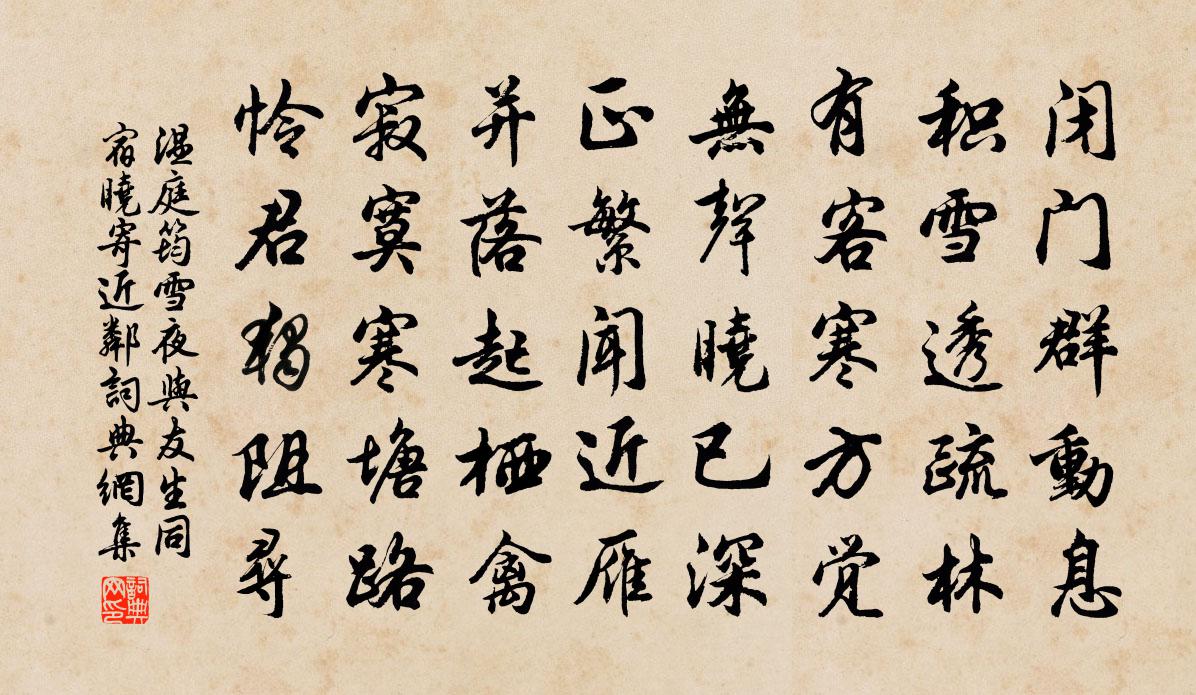 闭门群動息
积雪透疏林
有客寒方觉
無聲曉已深
正繁闻近雁
并落起栖禽
寂寞寒塘路
怜君独阻尋
温庭筠雪夜與友生同
宿曉寄近鄰詞典網集
詞典
网印